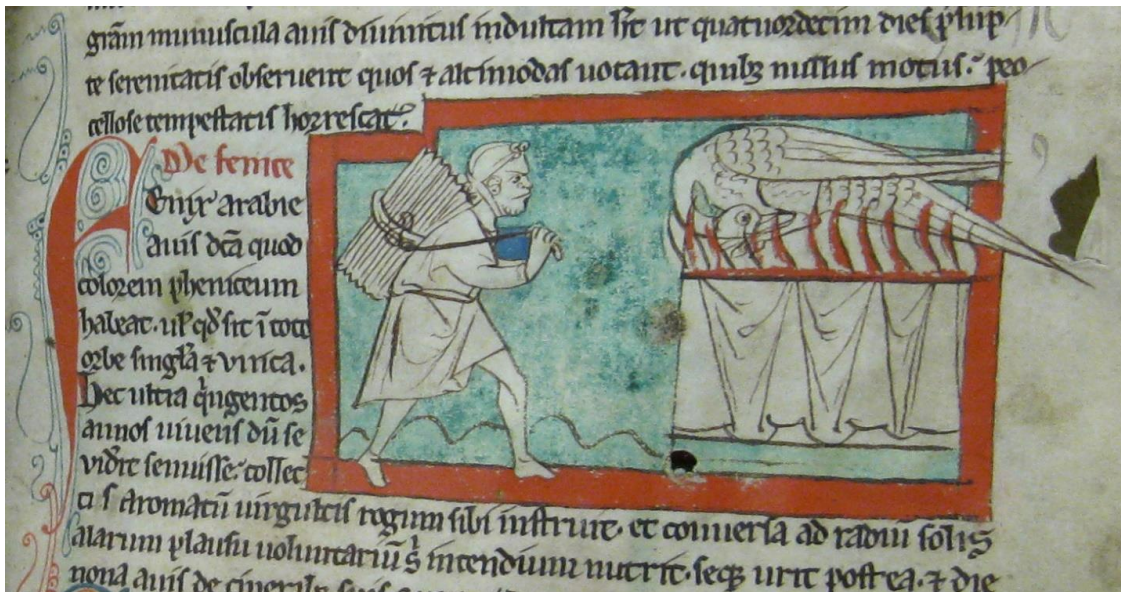 grām munuscula auis diuinitus indultam h̄t ut quatuordecim dies
te serenitatis obseruent quos ⁊ alcimodas uocant. quibꝫ nullus motus
cellose tempestatis horrescat.
De fenice
Enix arabie
auis dc̄a quod
colorem pheniceum
habeat. ul' qd̓ sit ī toto
orbe singl'a ⁊ vnica.
Hec ultra q̇ngentos
annos uiuens dū se
vid̓it senuisse. collec
ti s aromatū uirgultis rogum sibi instruit. et conuersa ad radiū solis
alarum plausu uoluntariū s̓ incendium nutrit. seqꝫ urit post ea. ⁊ die
nona auis de